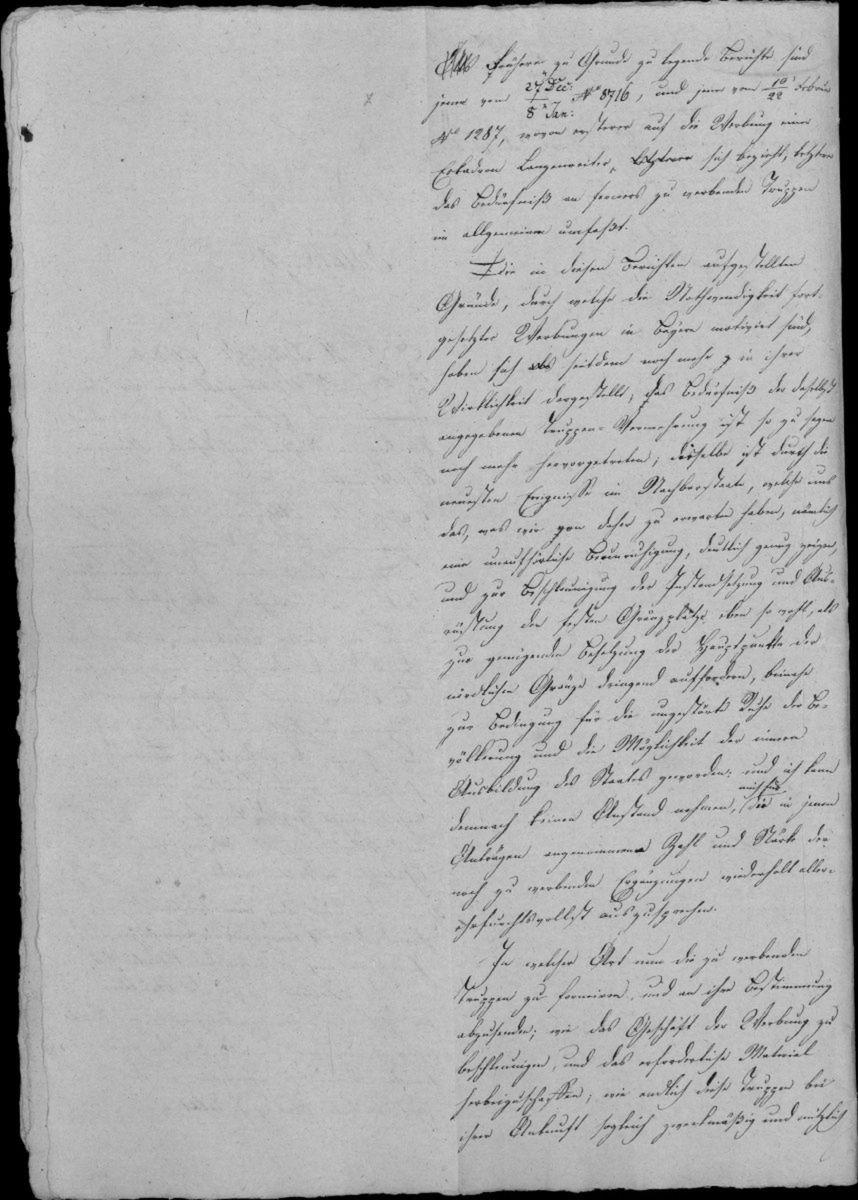 frühere zu Grunde zu legende Berichte sind
jener vom 27 Dec: / 8 Jan: Nº 8716, und jener vom 10 / 22 Februar
Nº 1287, wovon ersterer auf die Werbung einer
Eskadron Lanzenreiter, sich bezieht, letzterer
das Bedürfniß an ferners zu werbenden Truppen
im allgemeinen umfaßt.
die in diesen Berichten aufgestellten
Gründe, durch welche die Nothwendigkeit fort-
gesetzter Werbungen in Bayern motivirt sind,
haben sich seitdem noch mehr in ihrer
Wirklichkeit dargestellt; das Bedürfniß der daselbst
angegebenen Truppen-Vermehrung ist so zu sagen
noch mehr hervorgetreten; dasselbe ist durch die
neuesten Ereignisse im Nachbarstaate, welche uns
das, was wir von daher zu erwarten haben, nämlich
eine unaufhörliche Beunruhigung, deutlich genug zeigen,
und zur Beschleunigung der Instandsetzung und Aus-
rüstung der festen Gränzplätze eben so wohl, als
zur genügenden Besetzung der Hauptpunkte der
nördlichen Gränze dringend auffordern, beinahe
zur Bedingung für die ungestörte Ruhe der Be-
völkerung und die Möglichkeit der innern
Ausbildung des Staates geworden; und ich kann
demnach keinen Anstand nehmen, mich für die in jenen
Anträgen angenommene Zahl und Stärke der
noch zu werbenden Ergänzungen wiederholt aller-
ehrfurchtsvollst auszusprechen.
In welcher Art nun die zu werbenden
Truppen zu formiren, und an ihre Bestimmung
abzusenden; wie das Geschäft der Werbung zu
beschleunigen, und das erforderliche Material
herbeizuschaffen; wie endlich diese Truppen bei
ihrer Ankunft sogleich zweckmäßig und nützlich